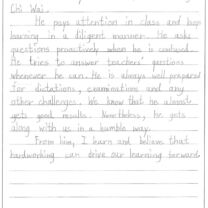 Chi Wai.
He pays attention in class and keeps
learning in a diligent manner. He asks
questions proactively when he is confused.
He tries to answer teachers' questions
whenever he can. He is always well prepared
for dictations, examinations and any
other challenges. We know that he almost
gets good results. Nonetheless, he gets
along with us in a humble way.
From him, I learn and believe that
hardworking can drive our learning forward.